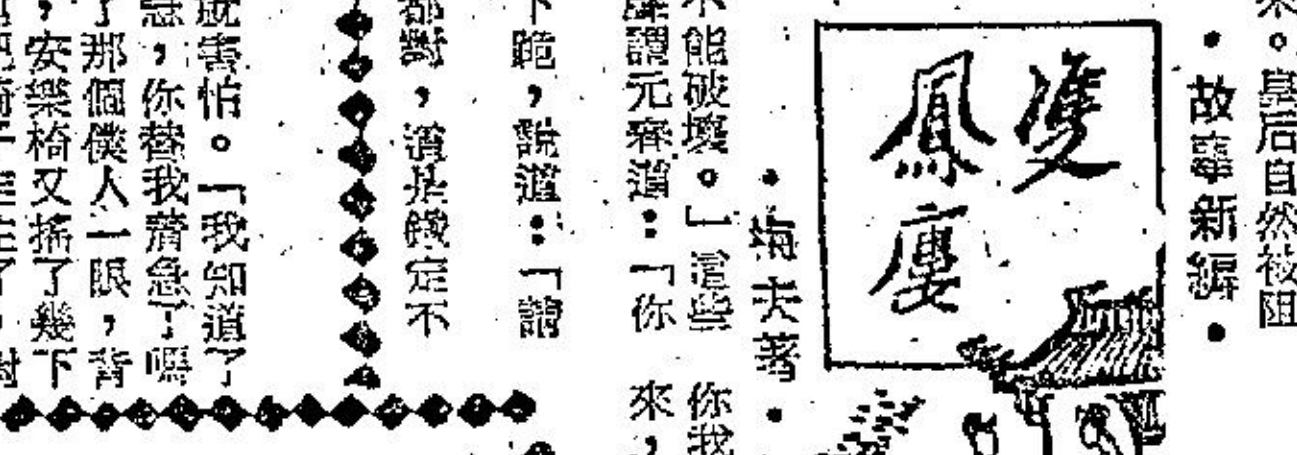 來。皇后自然被阻
•故事新編•
雙
鳳
•梅夫著•
不能破壞。」這些
你我
謂元春道：「你
來，
下跪，說道：「請
都對，還是錢定不
就害怕。「我知道了
急，你替我着急了嗎
了那個僕人一眼，背
，安樂椅又搖了幾下